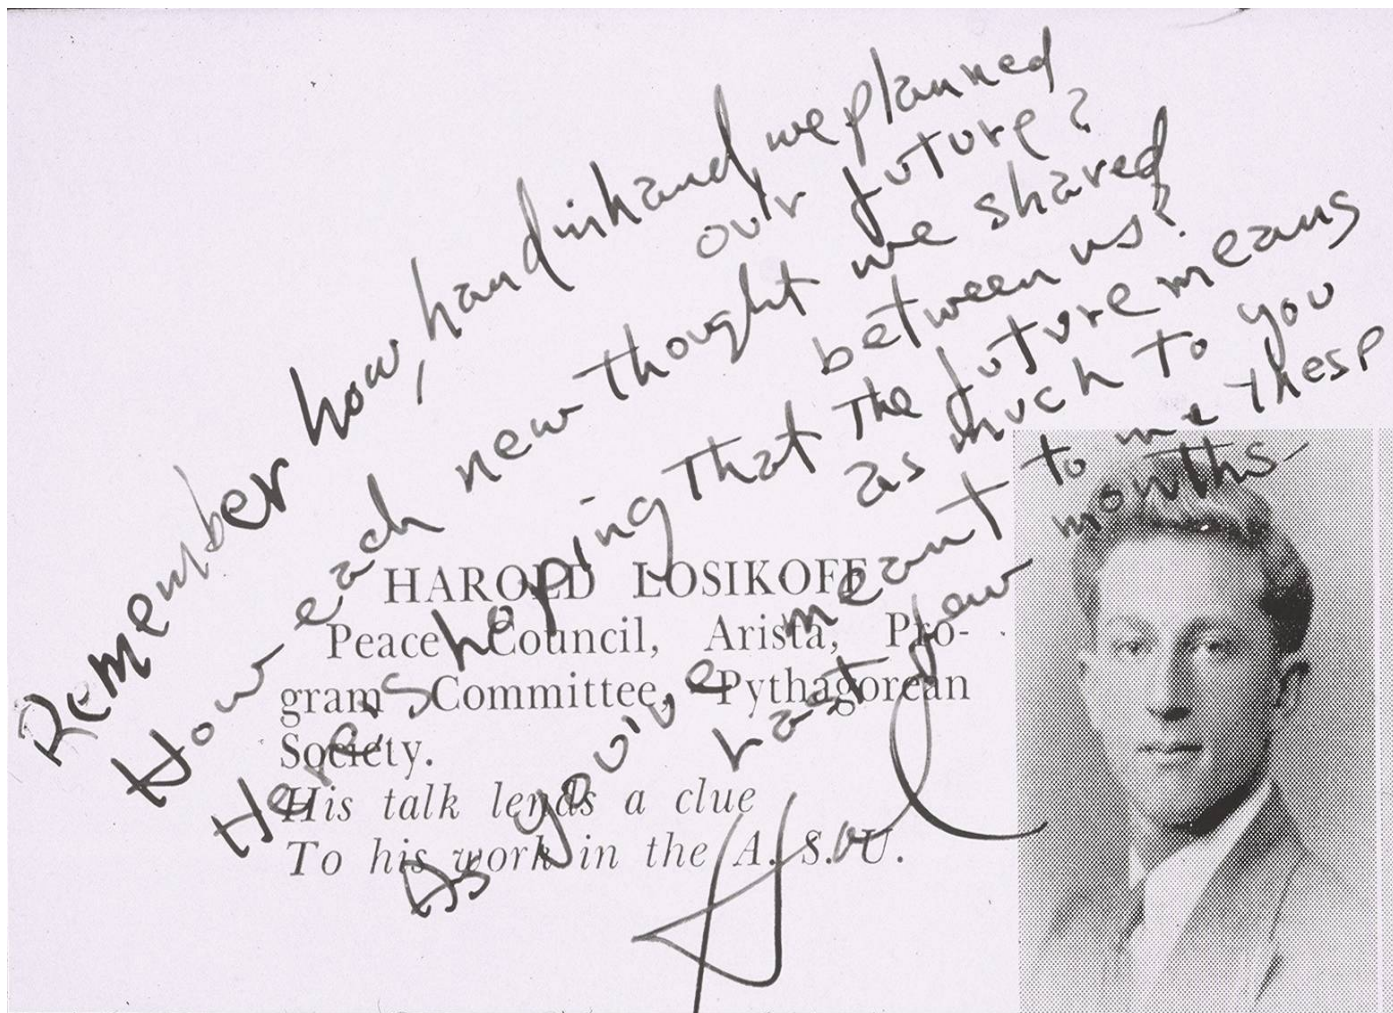 Remember how, hand in hand, we planned
our future?
How each new thought we shared
between us?
Here's hoping that the future means
as much to you
As you've meant to me these
last few months—
HAROLD LOSIKOFF
Peace Council, Arista, Pro-
gram Committee, Pythagorean
Society.
His talk lends a clue
To his work in the A. S. U.